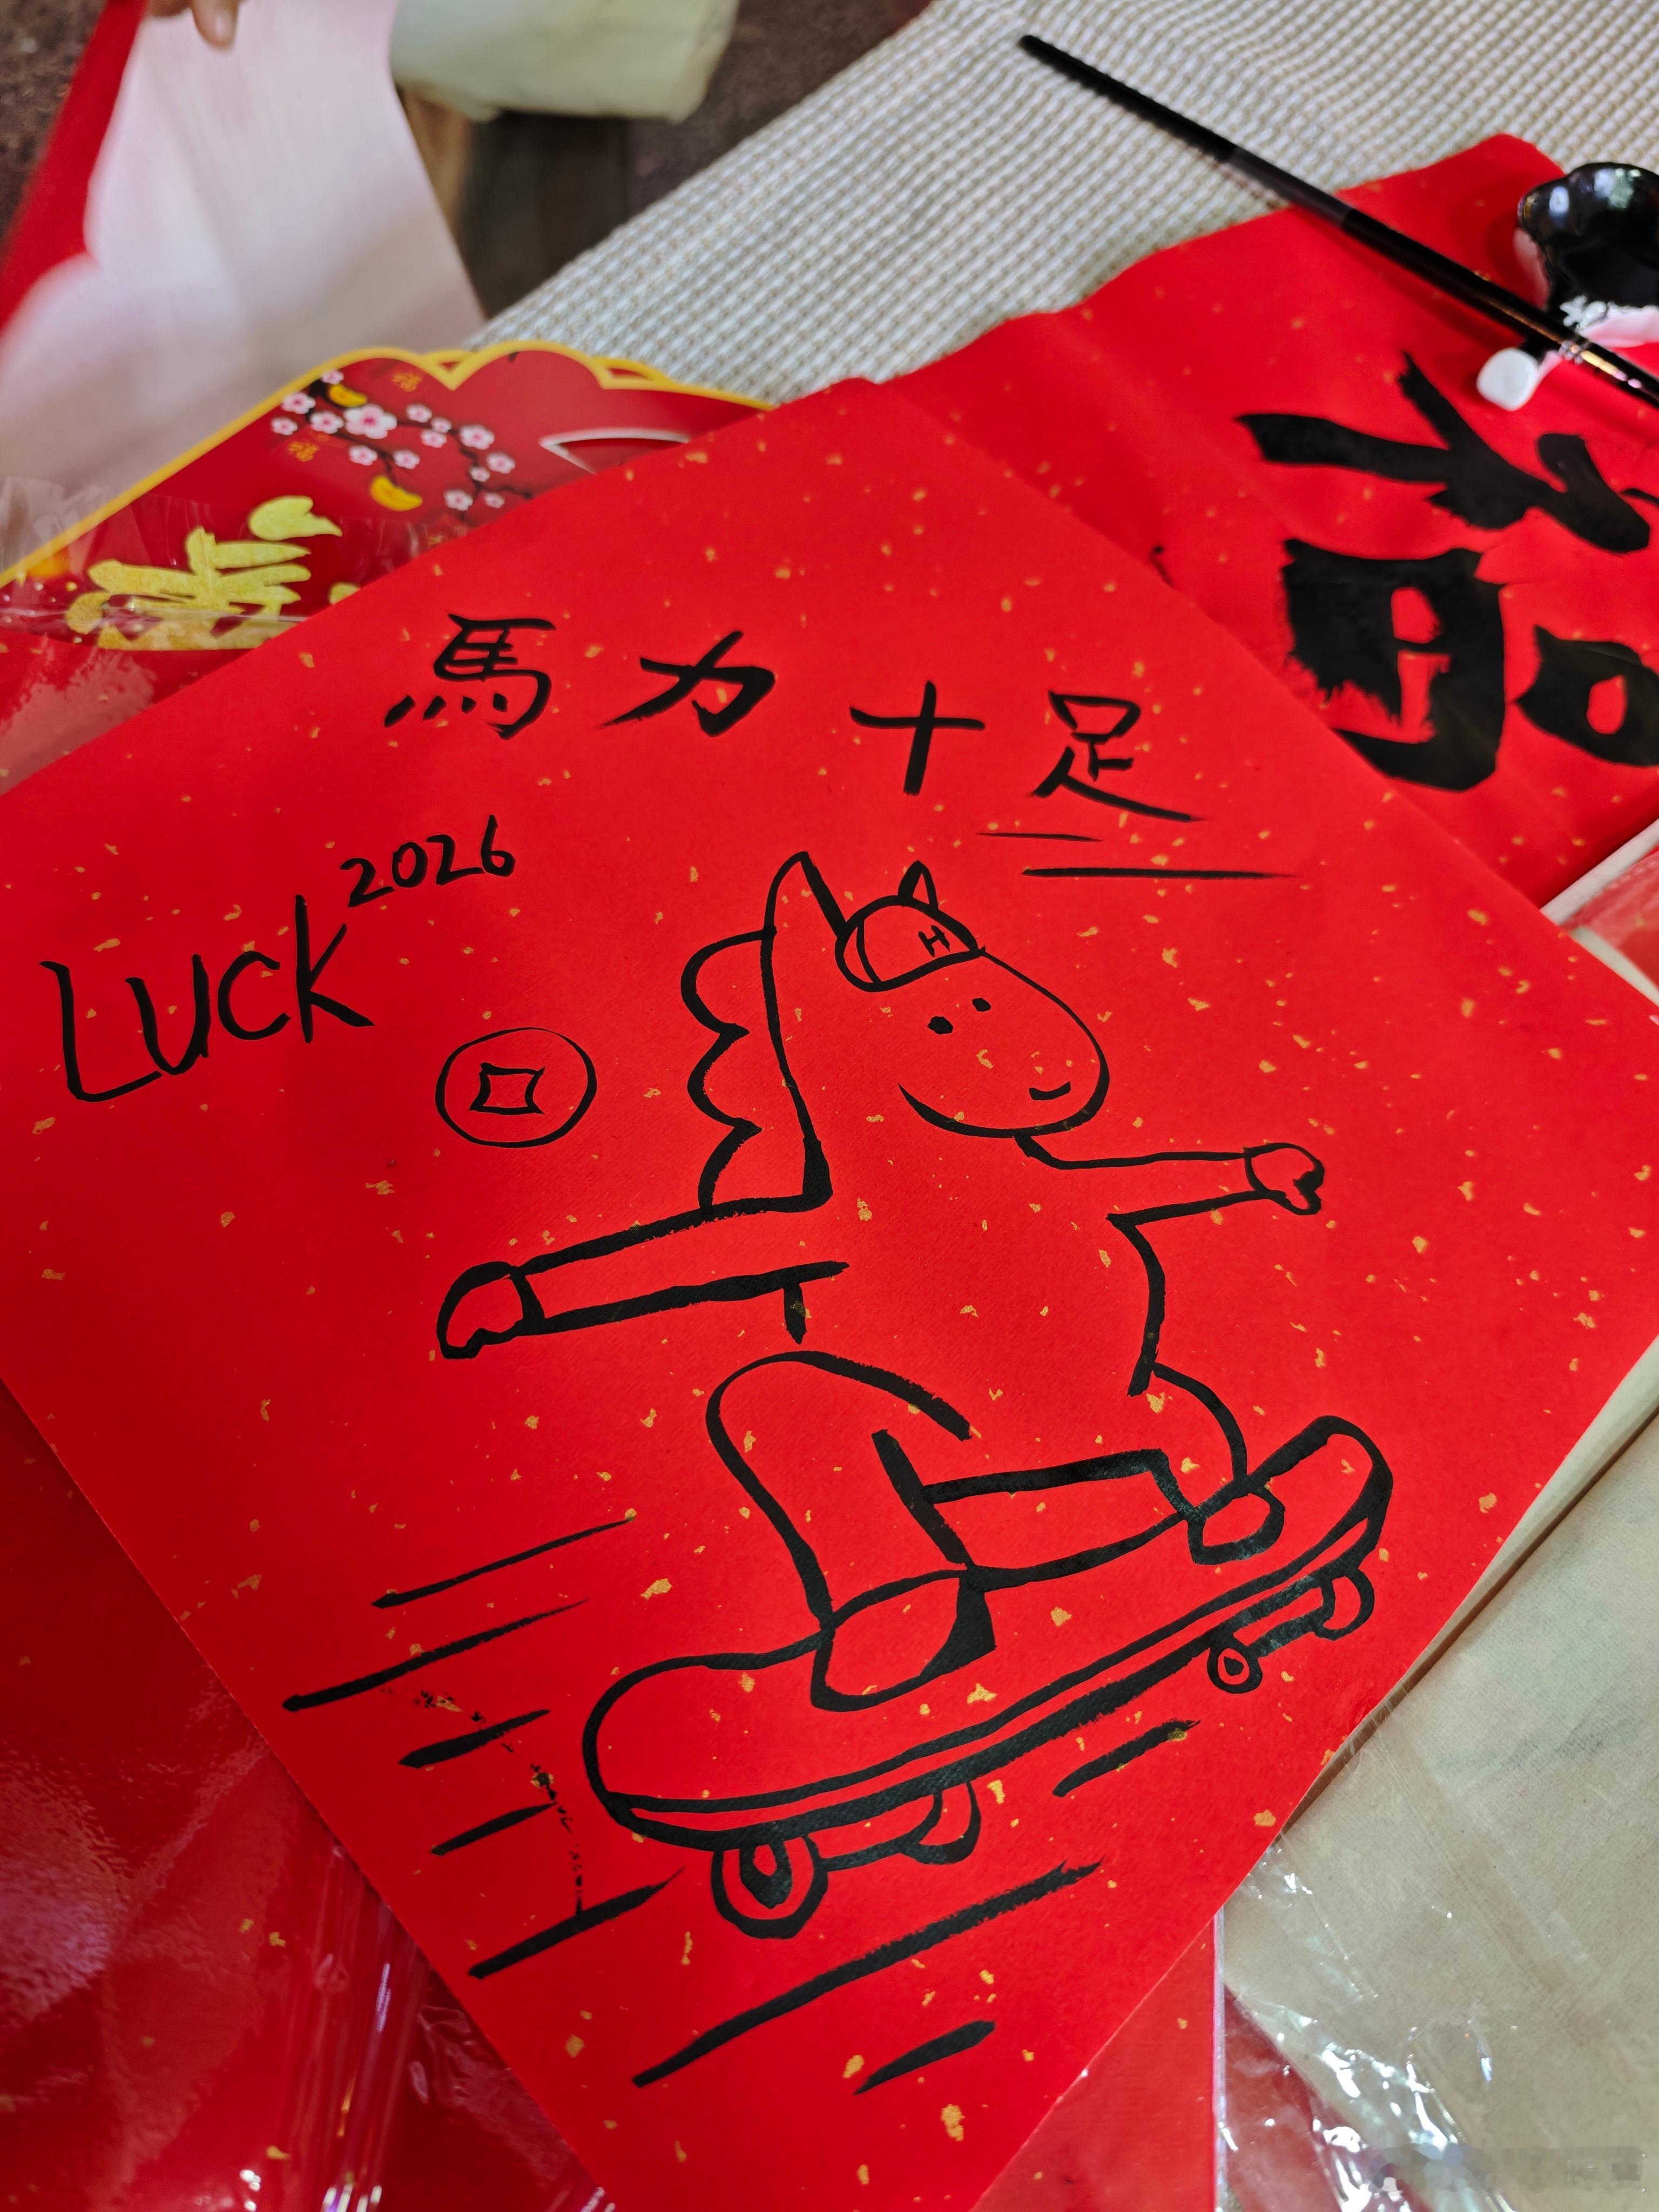 馬力十足
LUCK 2026
H
福
福